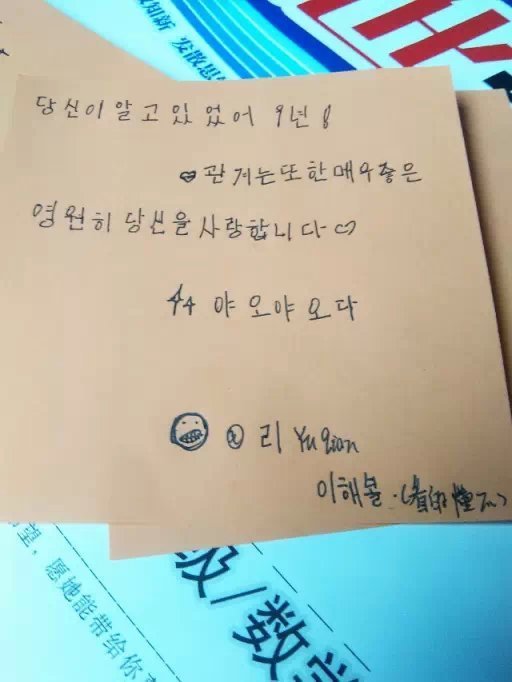 敌知新 发散思
당신이알고있었어 9년!
관계는또한매우좋은
영원히당신을사랑합니다
야오야오다
리 Yu Qian
이해볼·(看的懂不)
级/数学
望，愿她能带给你